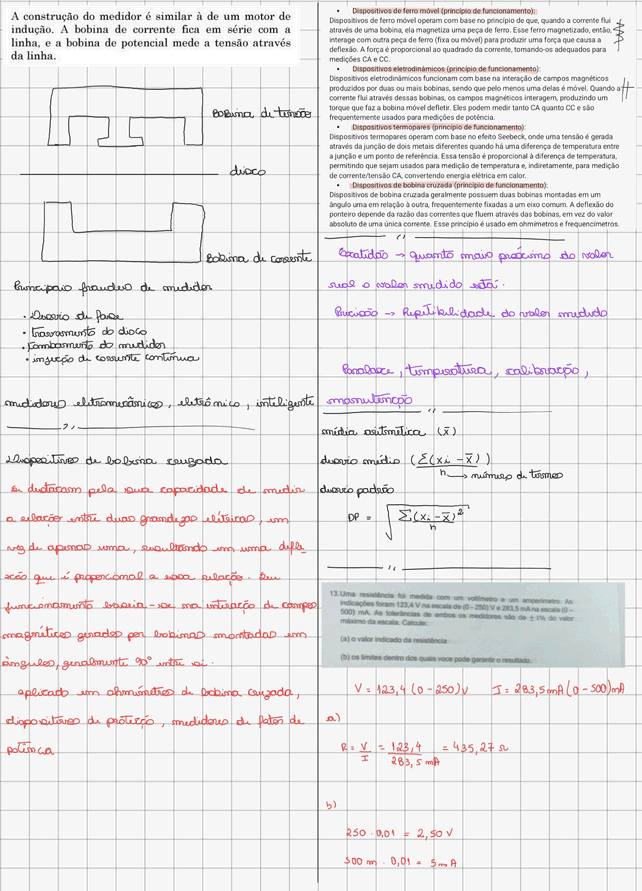 A construção do medidor é similar à de um motor de
indução. A bobina de corrente fica em série com a
linha, e a bobina de potencial mede a tensão através
da linha.
Bobina de tensão
disco
Bobina de corrente
Principais fraudes de medidor
• Desvio de fase
• travamento do disco
• tombamento do medidor
• injeção de corrente contínua
medidores eletromecânicos, eletrônico, inteligente
Dispositivos de bobina cruzada
se destacam pela sua capacidade de medir
a relação entre duas grandezas elétricas, em
vez de apenas uma, resultando em uma defle
xão que é proporcional a essa relação. Seu
funcionamento baseia-se na interação de campos
magnéticos gerados por bobinas montadas em
ângulos, geralmente 90° entre si.
aplicado em ohmímetros de bobina cruzada,
dispositivos de proteção, medidores de fator de
potência
• Dispositivos de ferro móvel (princípio de funcionamento):
Dispositivos de ferro móvel operam com base no princípio de que, quando a corrente flui
através de uma bobina, ela magnetiza uma peça de ferro. Esse ferro magnetizado, então,
interage com outra peça de ferro (fixa ou móvel) para produzir uma força que causa a
deflexão. A força é proporcional ao quadrado da corrente, tornando-os adequados para
medições CA e CC.
• Dispositivos eletrodinâmicos (princípio de funcionamento):
Dispositivos eletrodinâmicos funcionam com base na interação de campos magnéticos
produzidos por duas ou mais bobinas, sendo que pelo menos uma delas é móvel. Quando a
corrente flui através dessas bobinas, os campos magnéticos interagem, produzindo um
torque que faz a bobina móvel defletir. Eles podem medir tanto CA quanto CC e são
frequentemente usados para medições de potência.
• Dispositivos termopares (princípio de funcionamento):
Dispositivos termopares operam com base no efeito Seebeck, onde uma tensão é gerada
através da junção de dois metais diferentes quando há uma diferença de temperatura entre
a junção e um ponto de referência. Essa tensão é proporcional à diferença de temperatura,
permitindo que sejam usados para medição de temperatura e, indiretamente, para medição
de corrente/tensão CA, convertendo energia elétrica em calor.
• Dispositivos de bobina cruzada (princípio de funcionamento):
Dispositivos de bobina cruzada geralmente possuem duas bobinas montadas em um
ângulo uma em relação à outra, frequentemente fixadas a um eixo comum. A deflexão do
ponteiro depende da razão das correntes que fluem através das bobinas, em vez do valor
absoluto de uma única corrente. Esse princípio é usado em ohmímetros e frequencímetros.
Exatidão → quanto mais próximo do valor
real o valor medido está.
Precisão → Repetibilidade do valor medido
Paralaxe, temperatura, calibração,
manutenção
média aritmética (x̄)
desvio médio (Σ(xi - x̄))/n → número de termos
desvio padrão
DP = √(Σ(xi - x̄)²/n)
13. Uma resistência foi medida com um voltímetro e um amperímetro. As
indicações foram 123,4 V na escala de (0 - 250) V e 283,5 mA na escala (0 –
500) mA. As tolerâncias de ambos os medidores são de ± 1% do valor
máximo da escala. Calcule:
(a) o valor indicado da resistência
(b) os limites dentro dos quais voce pode garantir o resultado.
V = 123,4 (0 - 250) V I = 283,5 mA (0 - 500) mA
a)
R = V/I = 123,4/283,5 mA = 435,27 Ω
b)
250 · 0,01 = 2,50 V
500 m · 0,01 = 5 mA